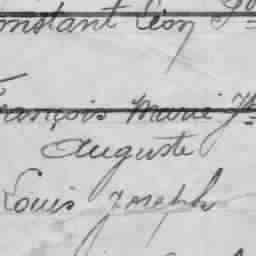 onstant Léon
François Marie
Auguste
Louis Joseph